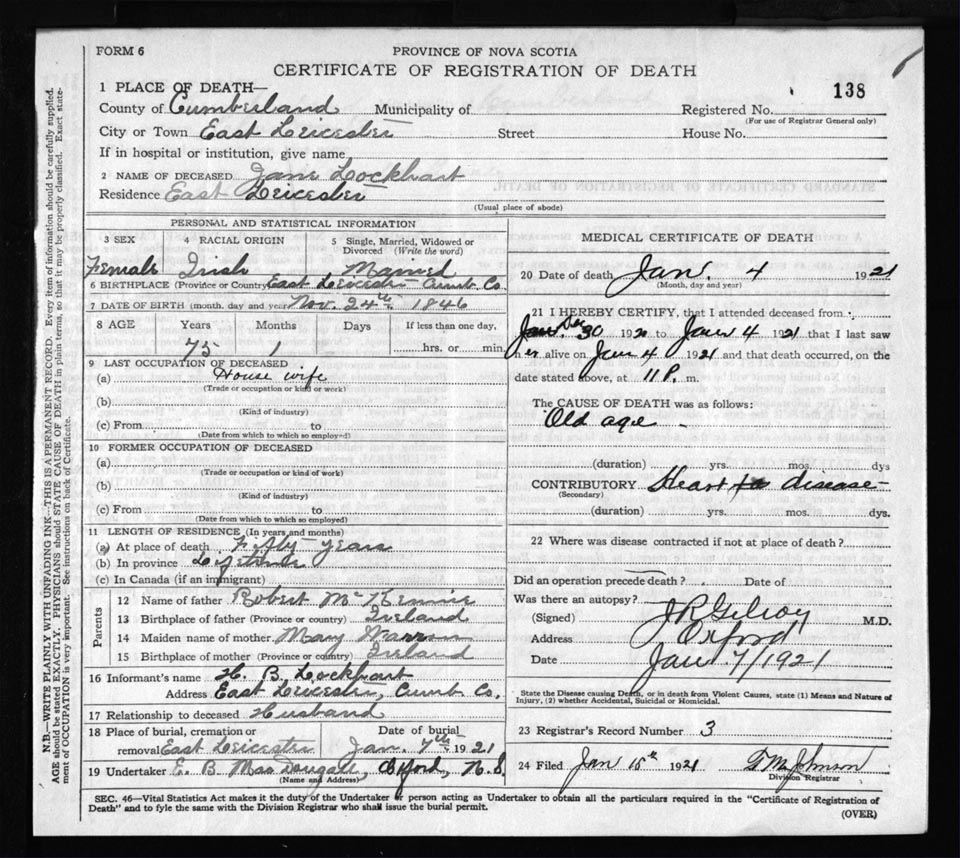 FORM 6
PROVINCE OF NOVA SCOTIA
CERTIFICATE OF REGISTRATION OF DEATH
138
1 PLACE OF DEATH—
County of Cumberland Municipality of Registered No.
(For use of Registrar General only)
City or Town East Leicester Street House No.
If in hospital or institution, give name
2 NAME OF DECEASED Jane Lockhart
Residence East Leicester
(Usual place of abode)
PERSONAL AND STATISTICAL INFORMATION
3 SEX 4 RACIAL ORIGIN 5 Single, Married, Widowed or Divorced (Write the word)
Female Irish Married
6 BIRTHPLACE (Province or Country) East Leicester Cumb. Co.
7 DATE OF BIRTH (month, day and year) Nov. 24th 1846
8 AGE Years Months Days If less than one day,
75 1 hrs. or min.
9 LAST OCCUPATION OF DECEASED
(a) House wife
(Trade or occupation or kind of work)
(b)
(Kind of industry)
(c) From to
(Date from which to which so employed)
10 FORMER OCCUPATION OF DECEASED
(a)
(Trade or occupation or kind of work)
(b)
(Kind of industry)
(c) From to
(Date from which to which so employed)
11 LENGTH OF RESIDENCE (In years and months)
(a) At place of death Fifty years
(b) In province Lifetime
(c) In Canada (if an immigrant)
Parents
12 Name of father Robert
13 Birthplace of father (Province or country) Ireland
14 Maiden name of mother Mary
15 Birthplace of mother (Province or country) Ireland
16 Informant's name H. B. Lockhart
Address East Leicester, Cumb. Co.
17 Relationship to deceased Husband
18 Place of burial, cremation or removal East Leicester
Date of burial
Jan. 7th 1921
19 Undertaker E. B. MacDougall, Oxford, N.S.
(Name and Address)
MEDICAL CERTIFICATE OF DEATH
20 Date of death Jan. 4 1921
(Month, day and year)
21 I HEREBY CERTIFY, that I attended deceased from
Dec 30 192 to Jan 4 1921 that I last saw
her alive on Jan 4 1921 and that death occurred, on the
date stated above, at 11 P. m.
The CAUSE OF DEATH was as follows:
Old age
(duration) yrs. mos. dys
CONTRIBUTORY Heart disease
(Secondary)
(duration) yrs. mos. dys.
22 Where was disease contracted if not at place of death?
Did an operation precede death? Date of
Was there an autopsy?
(Signed) J R Gilroy M.D.
Address Oxford
Date Jan 7/1921
State the Disease causing Death, or in death from Violent Causes, state (1) Means and Nature of
Injury, (2) whether Accidental, Suicidal or Homicidal.
23 Registrar's Record Number 3
24 Filed Jan 15th 1921 Johnson
Division Registrar
SEC. 46—Vital Statistics Act makes it the duty of the Undertaker or person acting as Undertaker to obtain all the particulars required in the "Certificate of Registration of
Death" and to fyle the same with the Division Registrar who shall issue the burial permit.
(OVER)
N.B.—WRITE PLAINLY WITH UNFADING INK—THIS IS A PERMANENT RECORD. Every item of information should be carefully supplied.
AGE should be stated EXACTLY. PHYSICIANS should STATE CAUSE OF DEATH in plain terms, so that it may be properly classified. Exact state-
ment of OCCUPATION is very important. See instructions on back of Certificate.